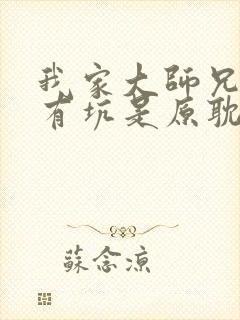 我家大師兄
有坑是原耽
蘇念涼